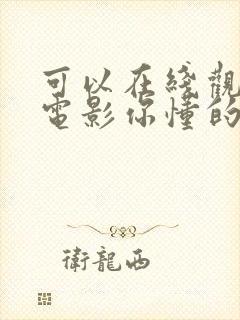 可以在綫觀
電影你懂的
衛龍西